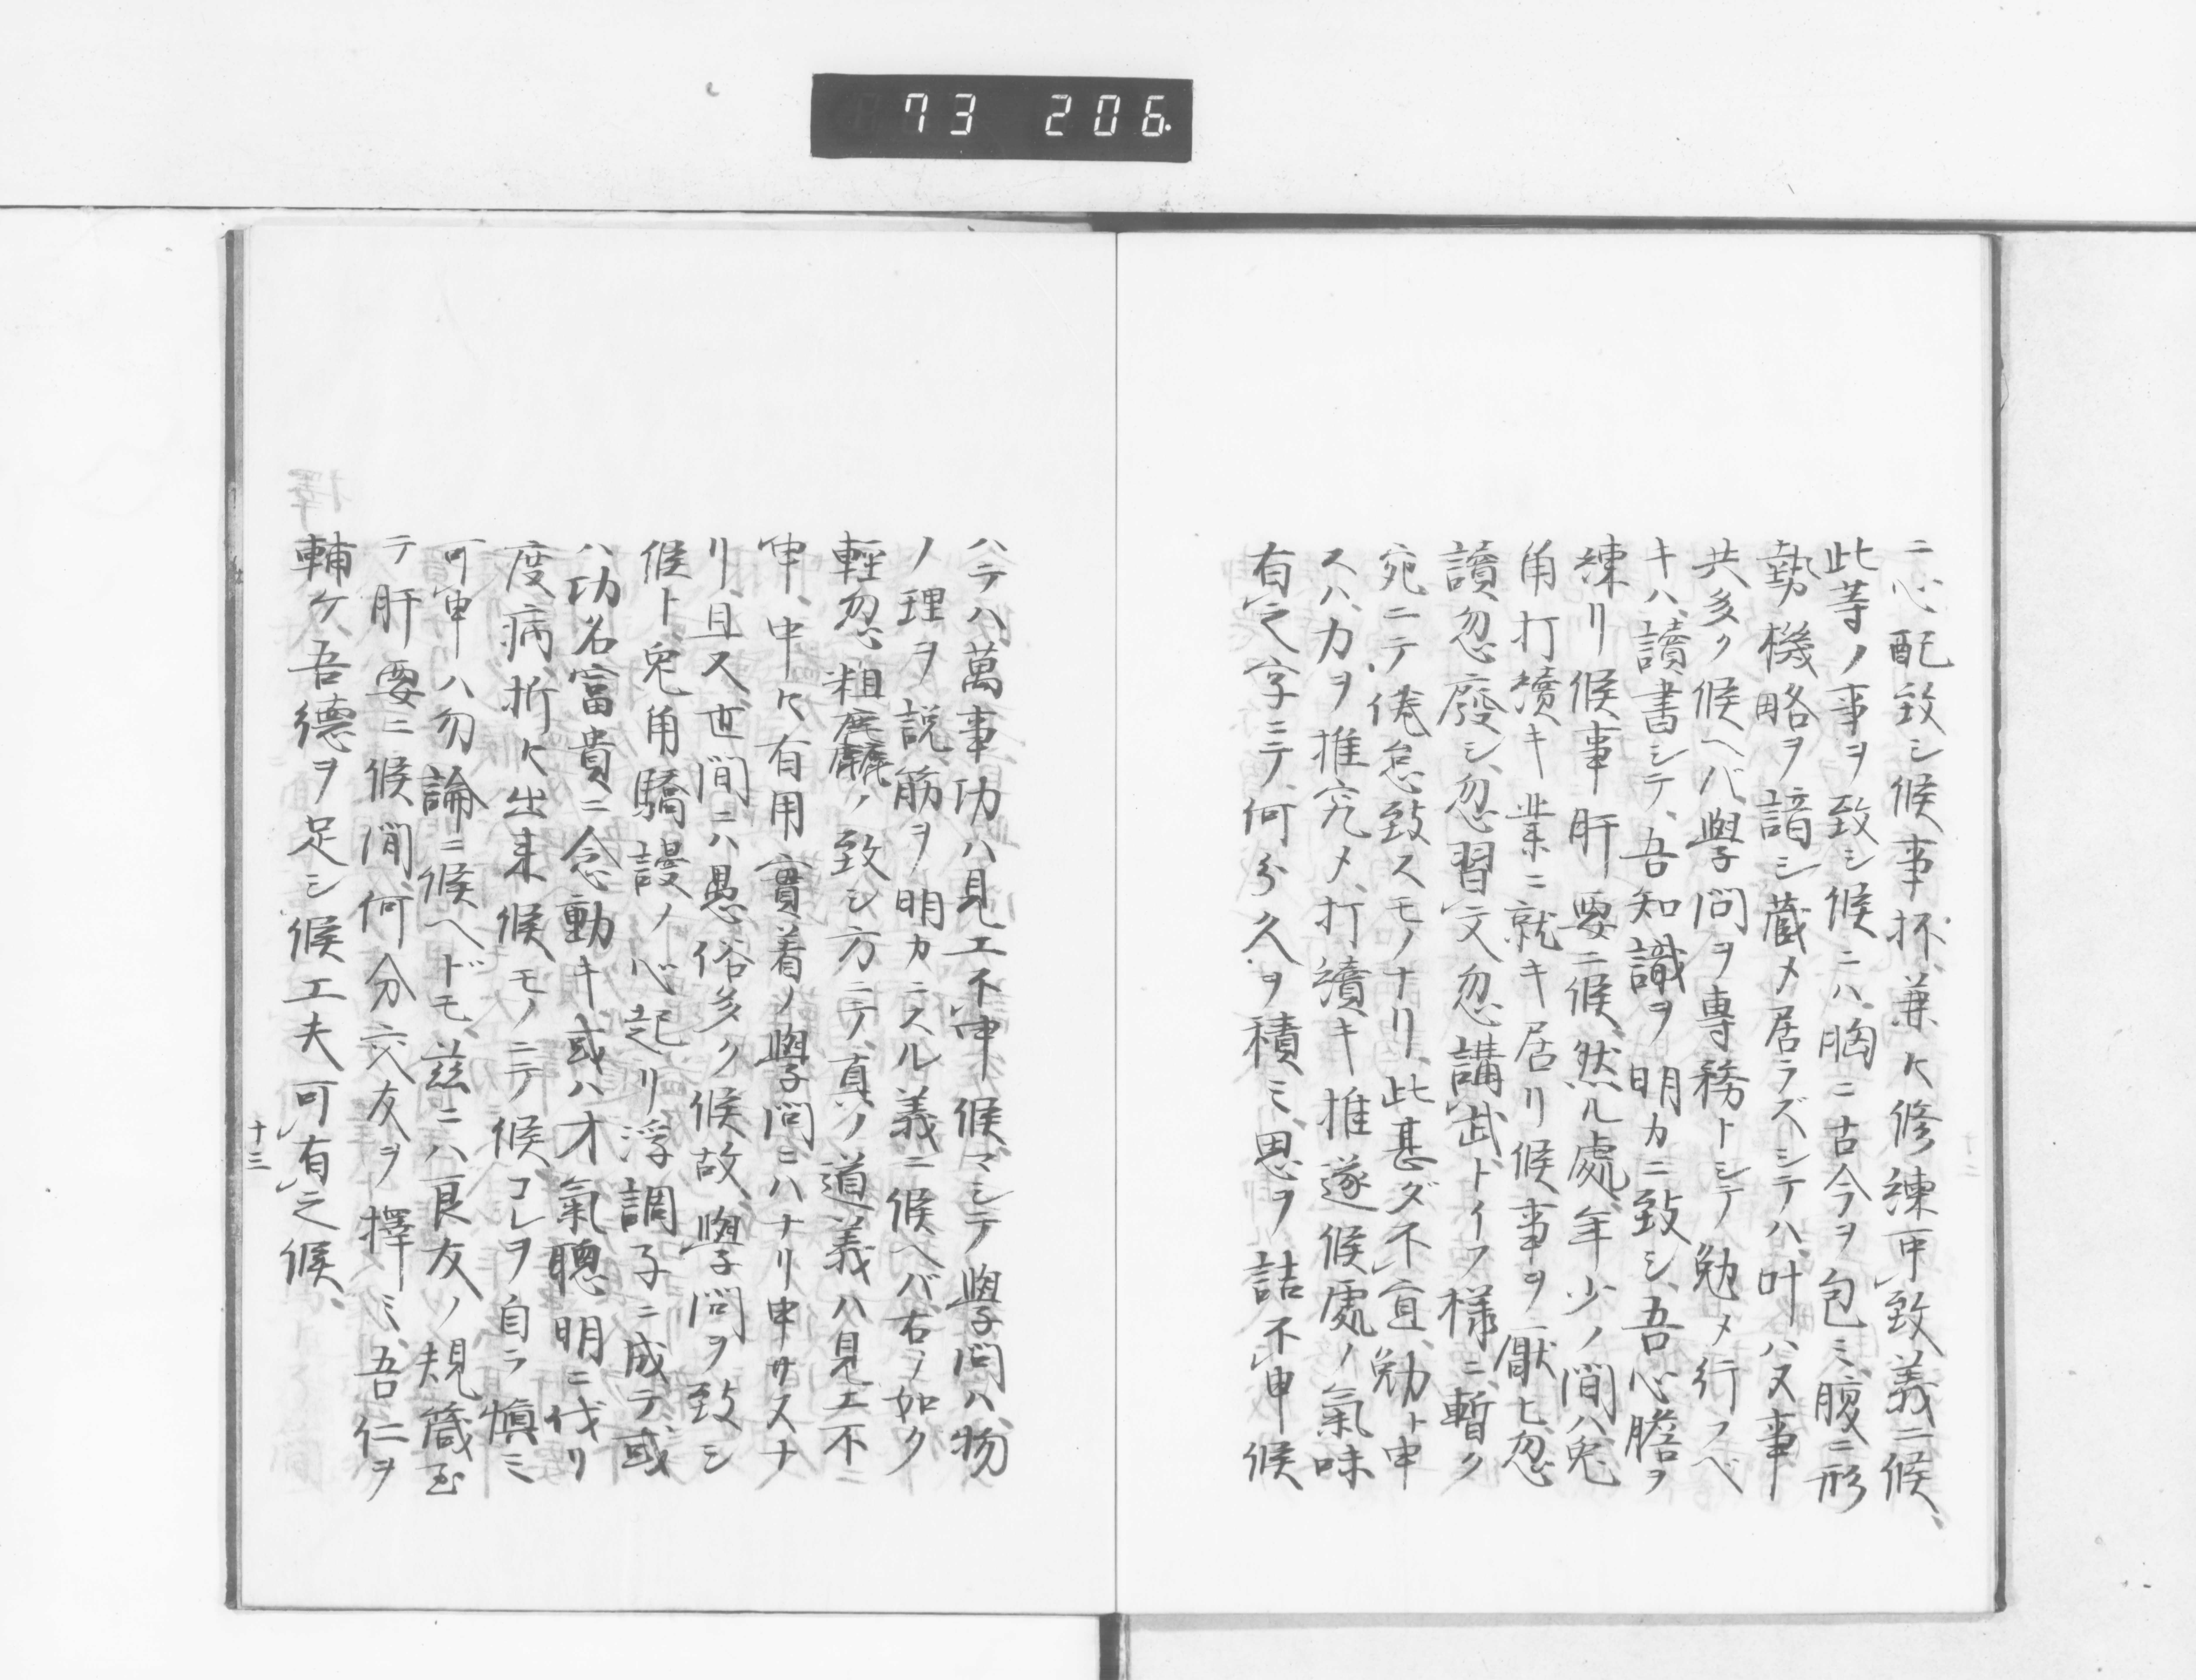 73 206.
ニ心配致シ候事抔兼々修練可申致義ニ候、
此等ノ事ヲ致シ候ニハ、胸ニ古今ヲ包ミ、腹ニ形
勢機略ヲ諳シ蔵メ居ラズシテハ、叶ハヌ事
共多ク候ヘバ、學問ヲ專務トシテ勉メ行フベ
キハ、讀書シテ、吾知識ヲ明カニ致シ、吾心膽ヲ
練リ候事肝要ニ候、然ル處、年少ノ間ハ兔
角打續キ業ニ就キ居リ候事ヲ厭ヒ、忽
讀忽廢シ、忽習文忽講武トイフ樣ニ、暫ク
宛ニテ、倦怠致スモノナリ、此甚ダ不宜、勉ト申
スハ、力ヲ推究メ、打續キ推遂候處ノ氣味
有之字ニテ、何分久ヲ積ミ、思ヲ詰不申候
ハテハ萬事功ハ見エ不申候、マシテ學問ハ、物
ノ理ヲ説、筋ヲ明カニスル義ニ候ヘバ、右ノ如ク
輕忽粗麤ノ致シ方ニテ、真ノ道義ハ見エ不
申、中々有用實着ノ學問ニハナリ申サヌナ
リ、且又世間ニハ愚俗多ク候故、學問ヲ致シ
候ト兔角驕謾ノ心起リ、浮調子ニ成テ、或
ハ功名富貴ニ念動キ、或ハ才氣聰明ニ伐リ
度病、折々出来候モノニテ候、コレヲ自ラ愼ミ
可申ハ勿論ニ候ヘドモ、茲ニハ良友ノ規箴至
テ肝要ニ候間、何分交友ヲ擇ミ、吾仁ヲ
輔ケ、吾德ヲ足シ候工夫可有之候、
十三